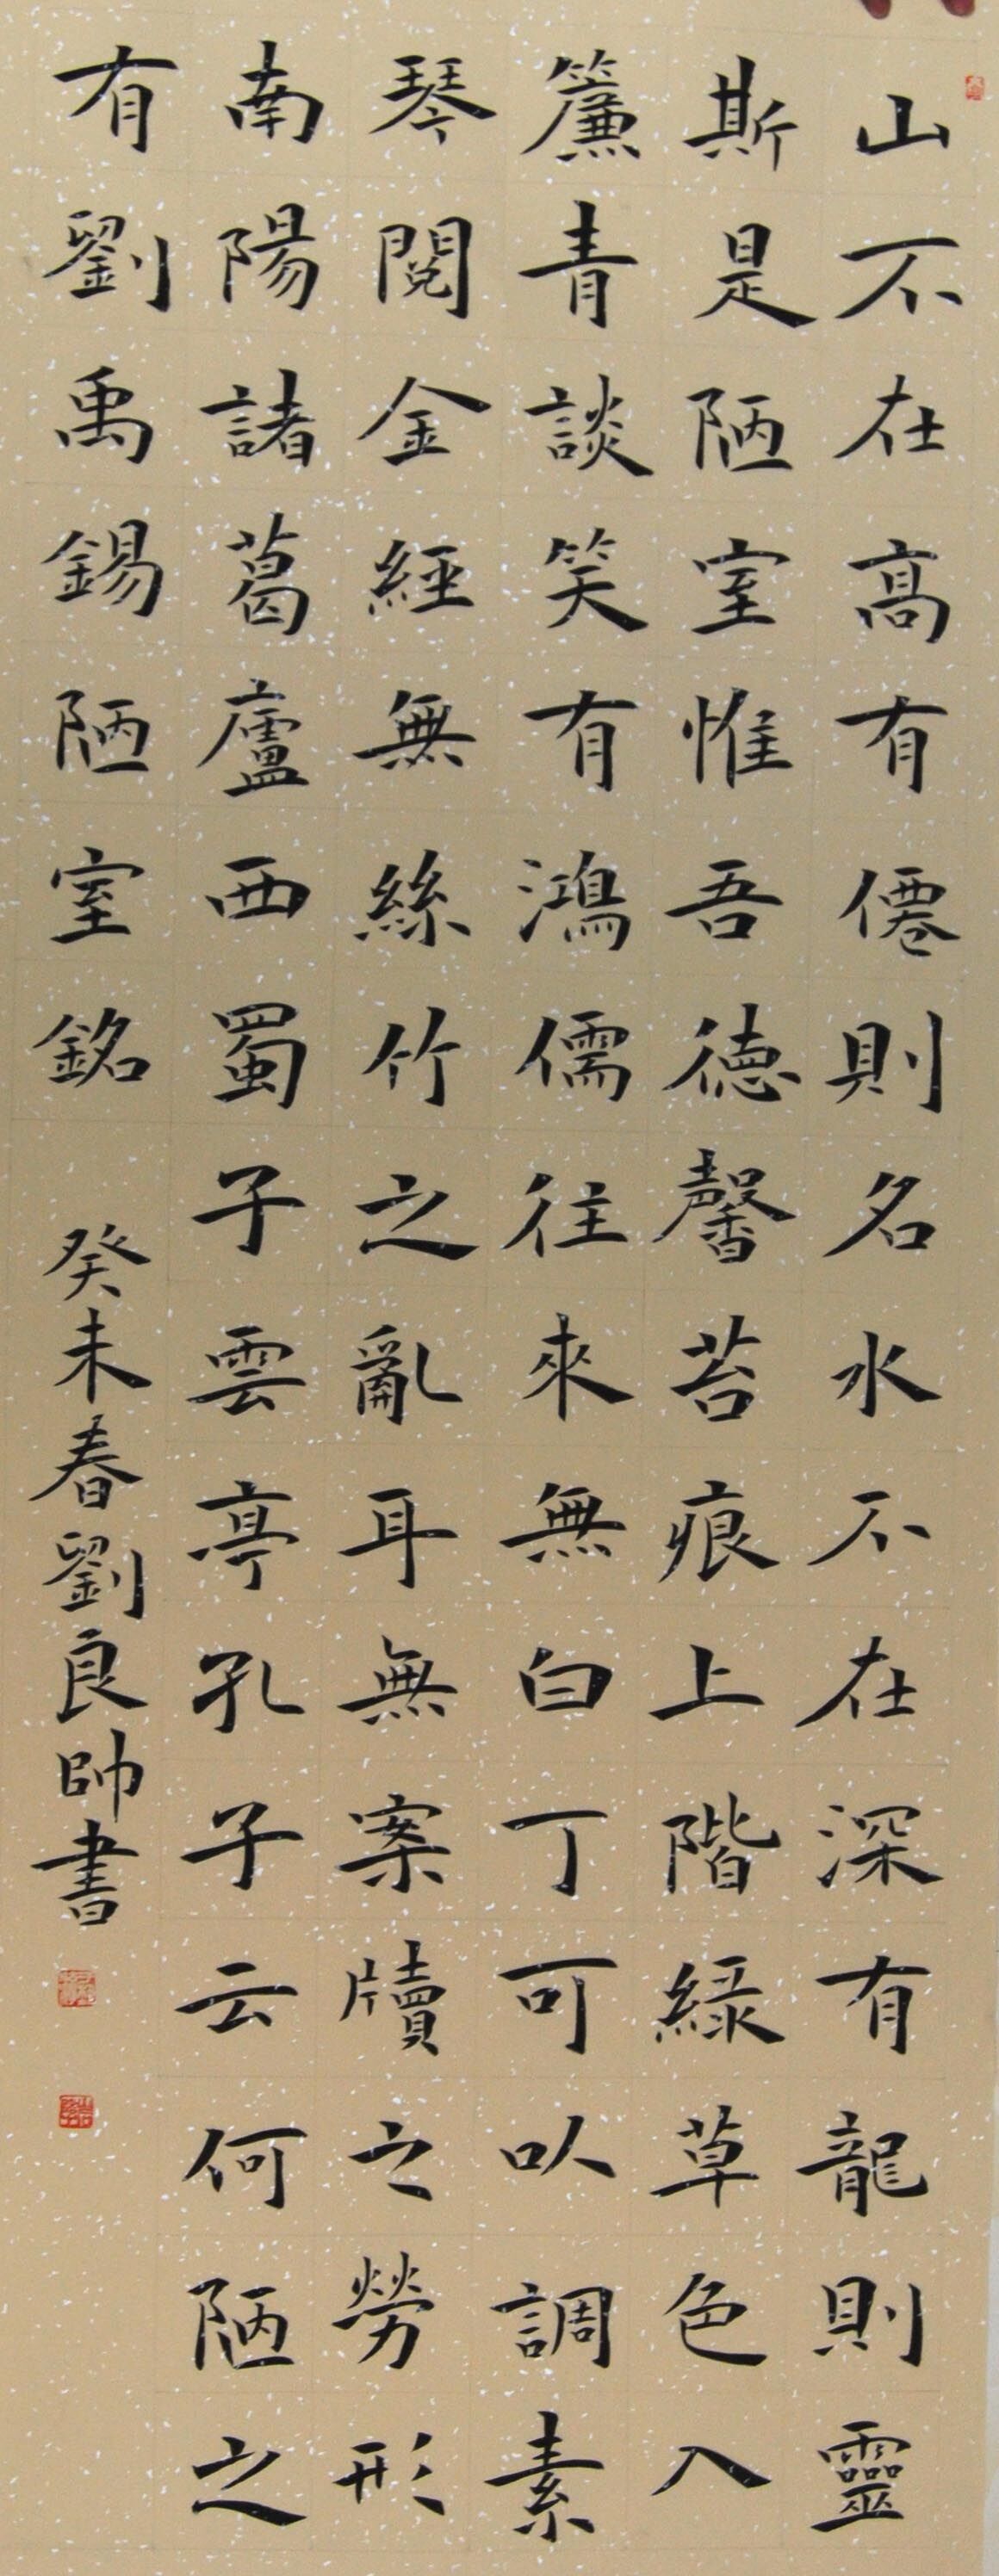 山不在高有僊則名水不在深有龍則靈
斯是陋室惟吾德馨苔痕上階綠草色入
簾青談笑有鴻儒往來無白丁可以調素
琴閱金經無絲竹之亂耳無案牘之勞形
南陽諸葛廬西蜀子雲亭孔子云何陋之
有劉禹錫陋室銘
癸未春劉良帥書